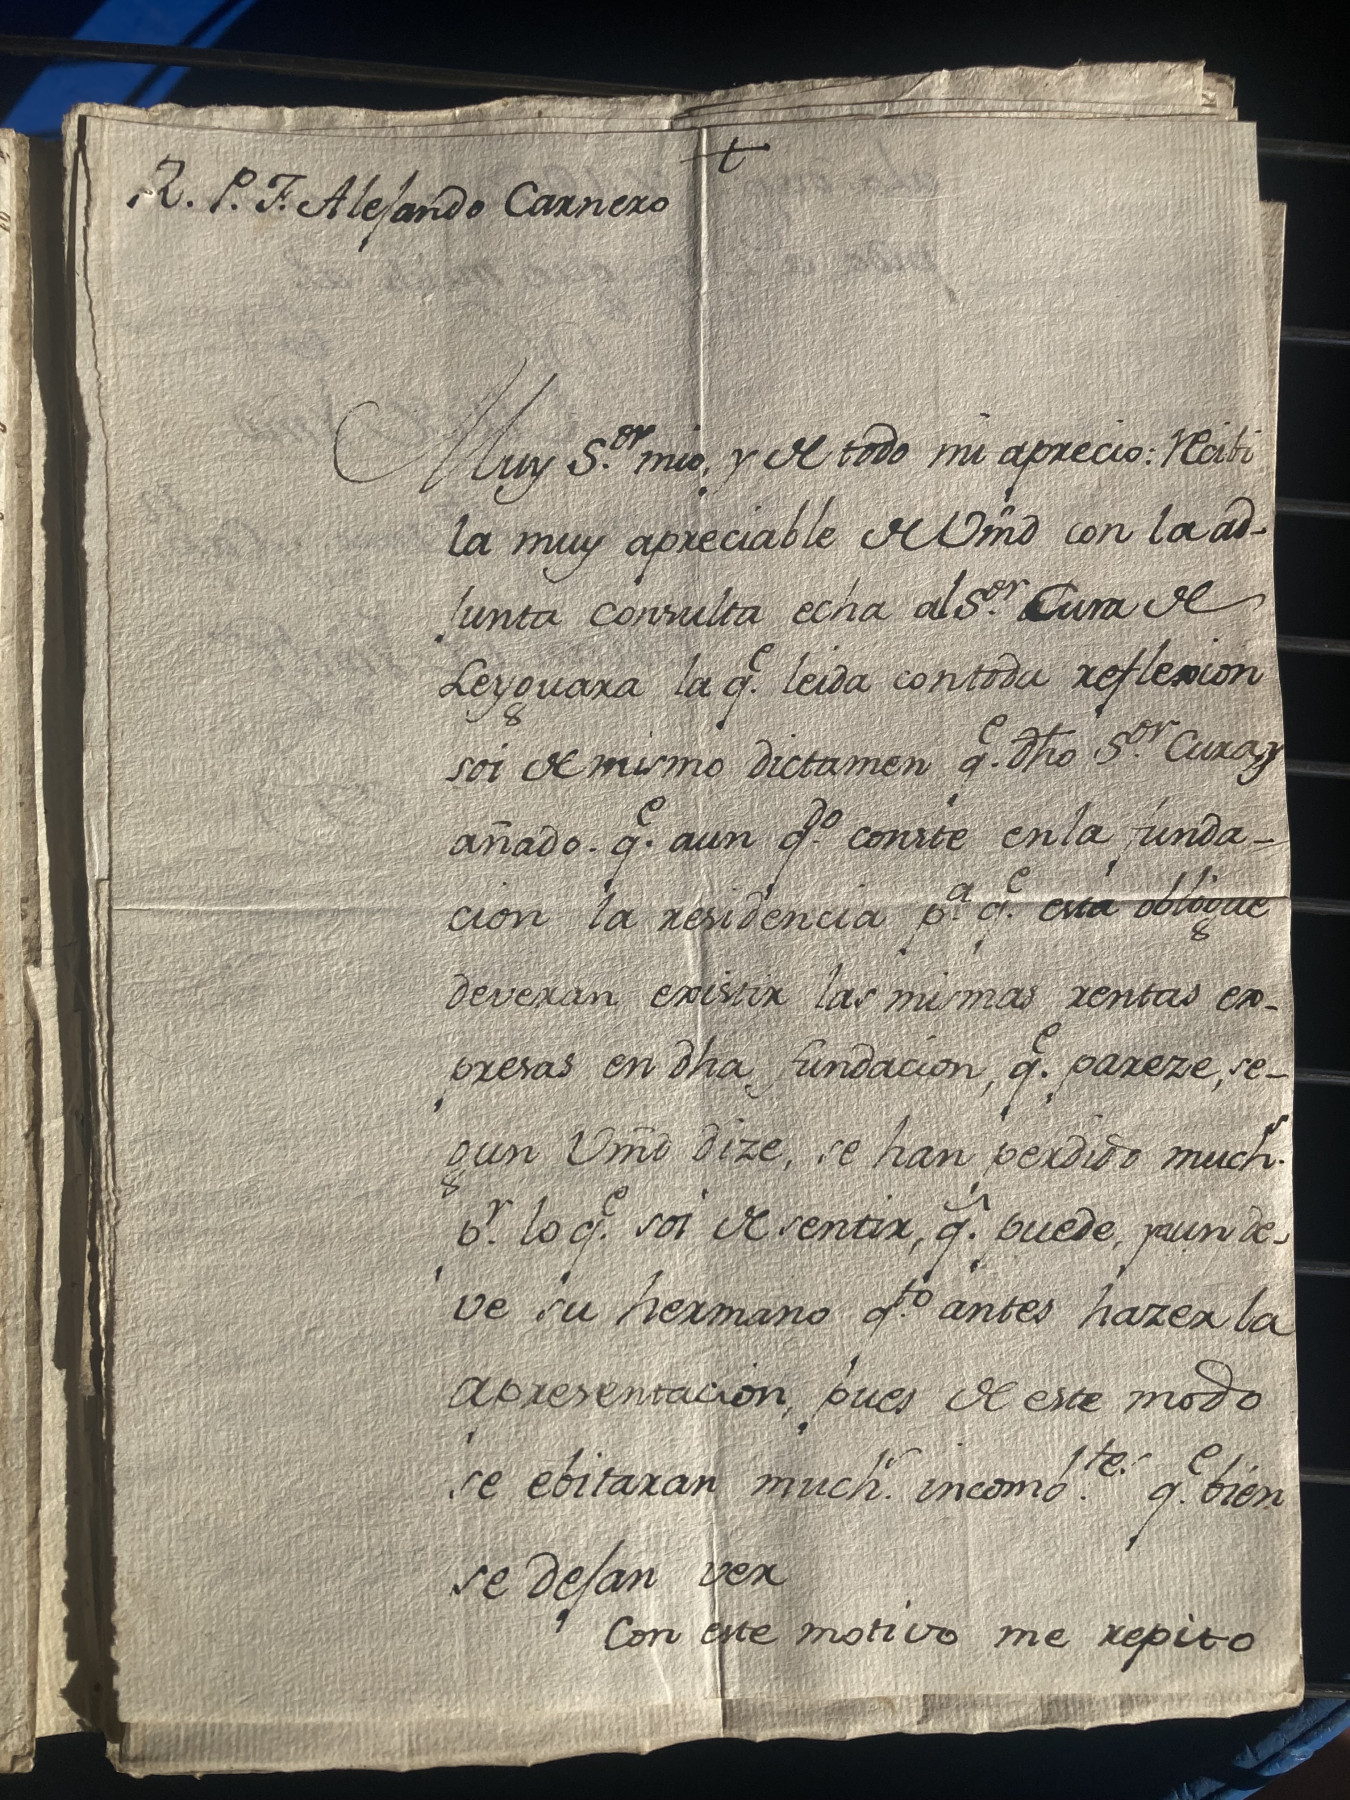 +
R. P. F. Alejandro Carnero
Muy S.or mio, y de todo mi aprecio: Recibi
la muy apreciable de Vm̃d con la ad-
junta consulta echa al S.or Cura de
Leyguara la q.e leida contoda reflexion
soi de mismo dictamen q.e dho S.or Cura, y
añado. q.e aun q.do conste en la funda-
cion la residencia p.a q.e esta obligue
deveran existir las mismas rentas ex-
presas en dha fundacion, q.e pareze, se-
gun Vm̃d dize, se han perdido much.s
p.r lo q.e soi de sentir, q.e puede, y aun de-
ve su hermano q.to antes hazer la
apresentacion, pues de este modo
se ebitaran much.s incomb.tes q.e bien
se dejan ver
Con este motivo me repito